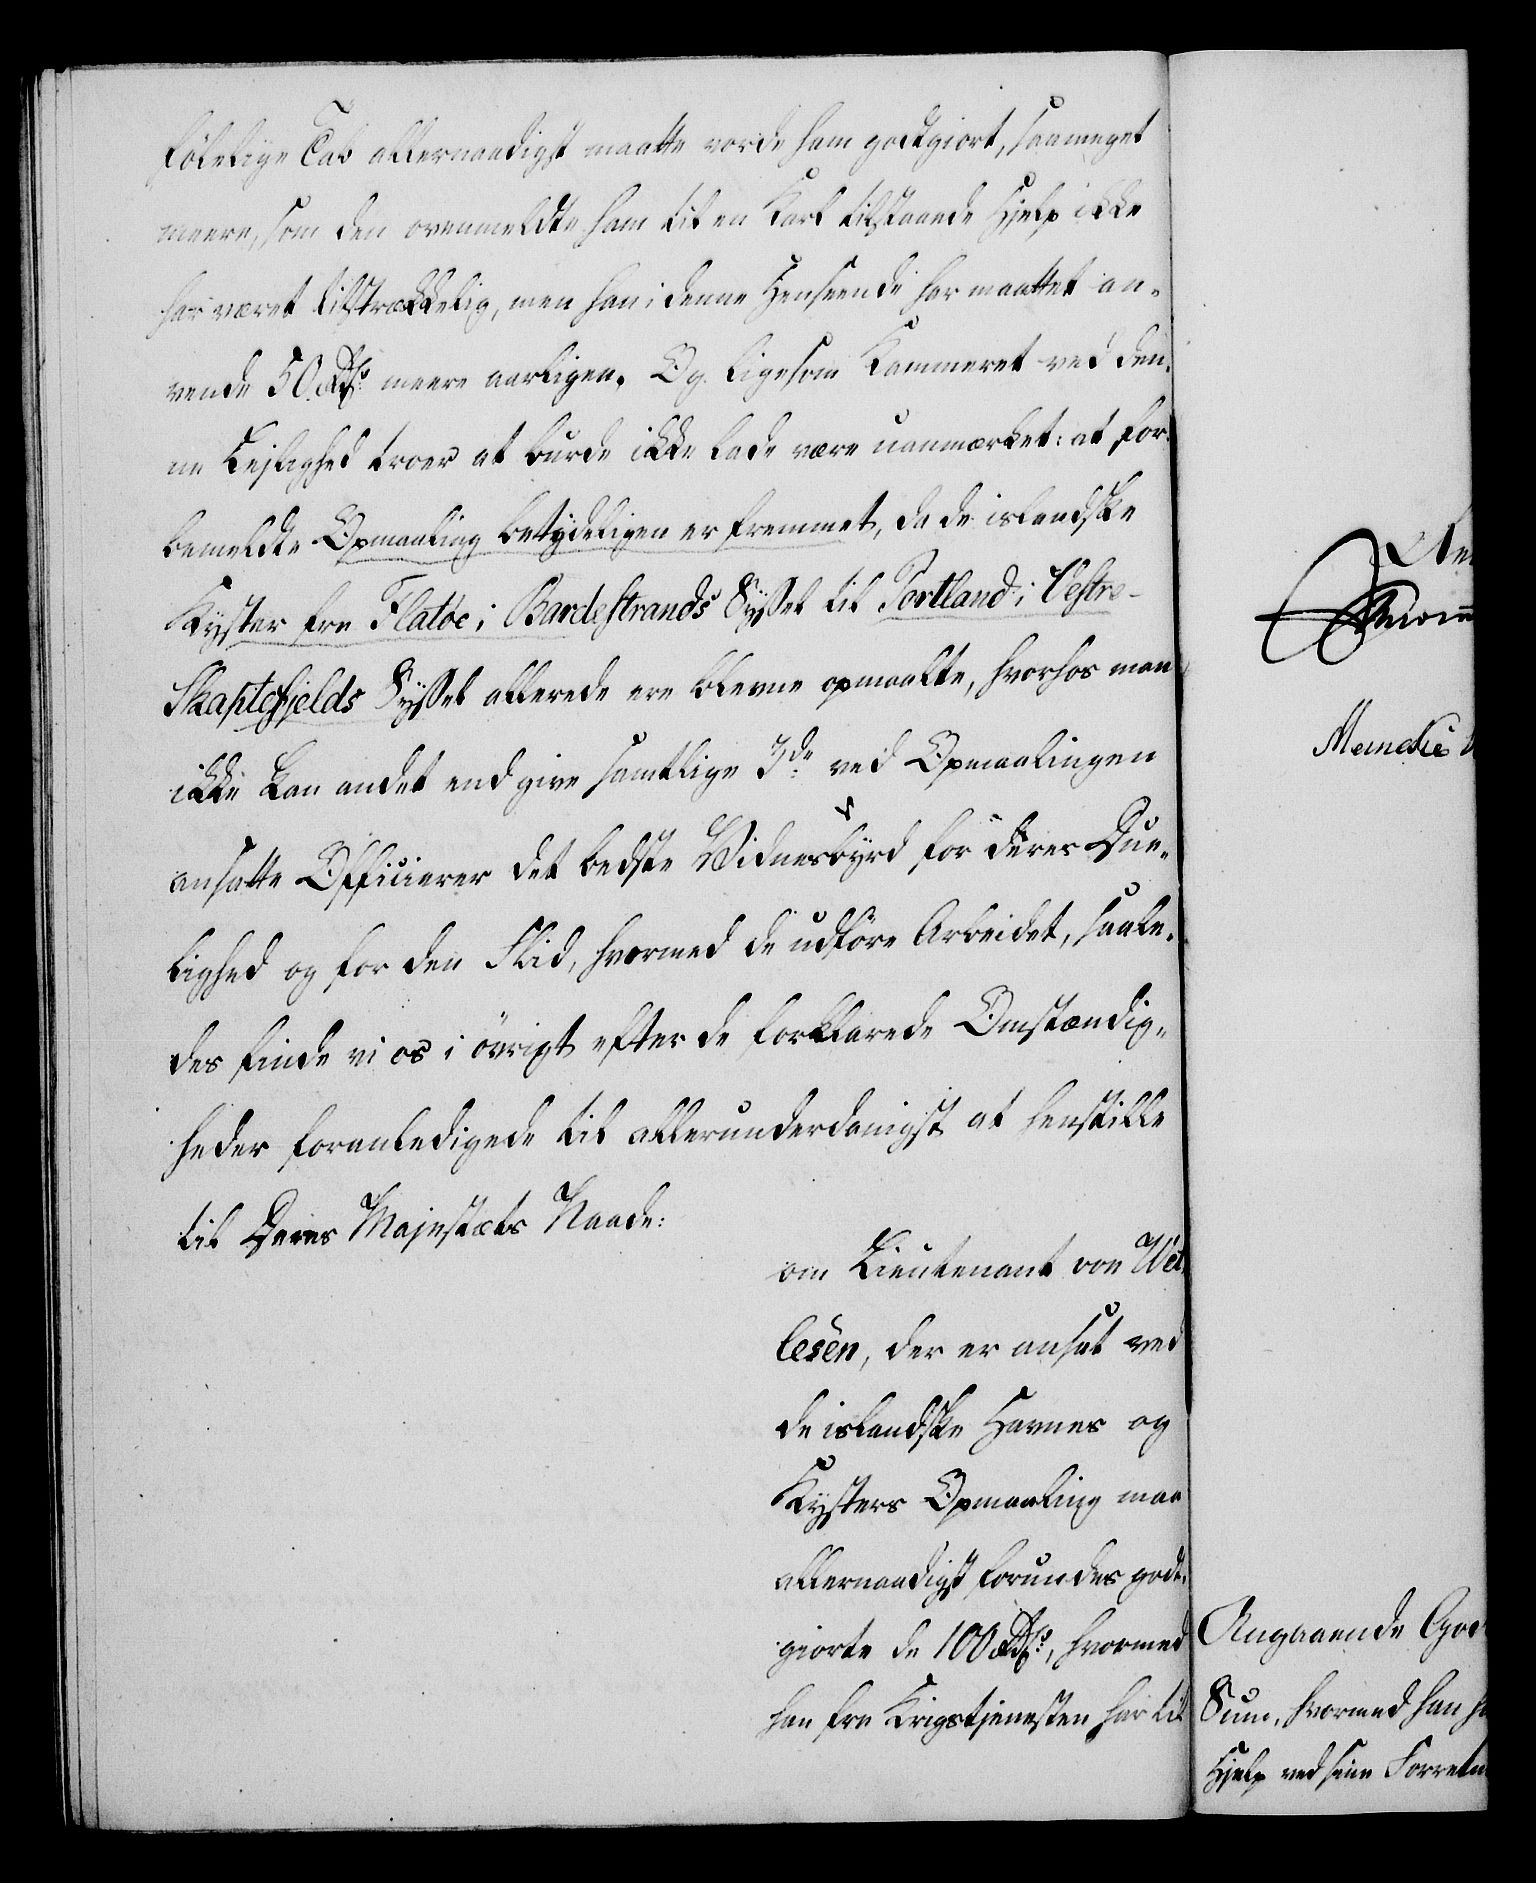 følelige Tab allernaadigst maatte vorde ham godtgiort, saameget
meere, som den ovenmeldte ham til en Karl tilstaaede Hjelp ikke
har været tilstrækkelig, men han i denne Henseende har maattet an-
vende 50 Rdlr meere aarligen. Og ligesom Kammeret ved den-
ne Lejlighed troer at burde ikke lade være uanmærket: at for-
bemeldte Opmaaling betydeligen er fremmet, da de islandske
Kyster fra Flatöe i Bardestrands Syssel til Portland i Vestre-
Skaptefjelds Syssel allerede ere blevne opmaalte, hvorhos man
ikke kan andet end give samtlige 3de ved Opmaalingen
ansatte Officierer det bedste Vidnesbyrd for deres Due-
lighed og for den Flid, hvormed de udföre Arbeidet, saale-
des finde vi os i övrigt efter de forklarede Omstændig-
heder foranledigede til allerunderdanigst at henstille
til Deres Majestæts Naade:
om Lieutenant von Wet-
lesen, der er ansat ved
de islandske Havnes og
Kysters Opmaaling maa
allernaadigst forundes godt-
giorte de 100 Rdlr, hvormed
han fra Krigstjenesten har til
Angaaende God
Sum, hvormed han
Hjelp ved sine Forretn